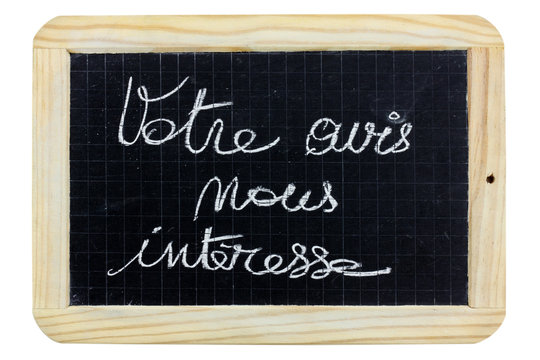 Votre avis
nous
intéresse